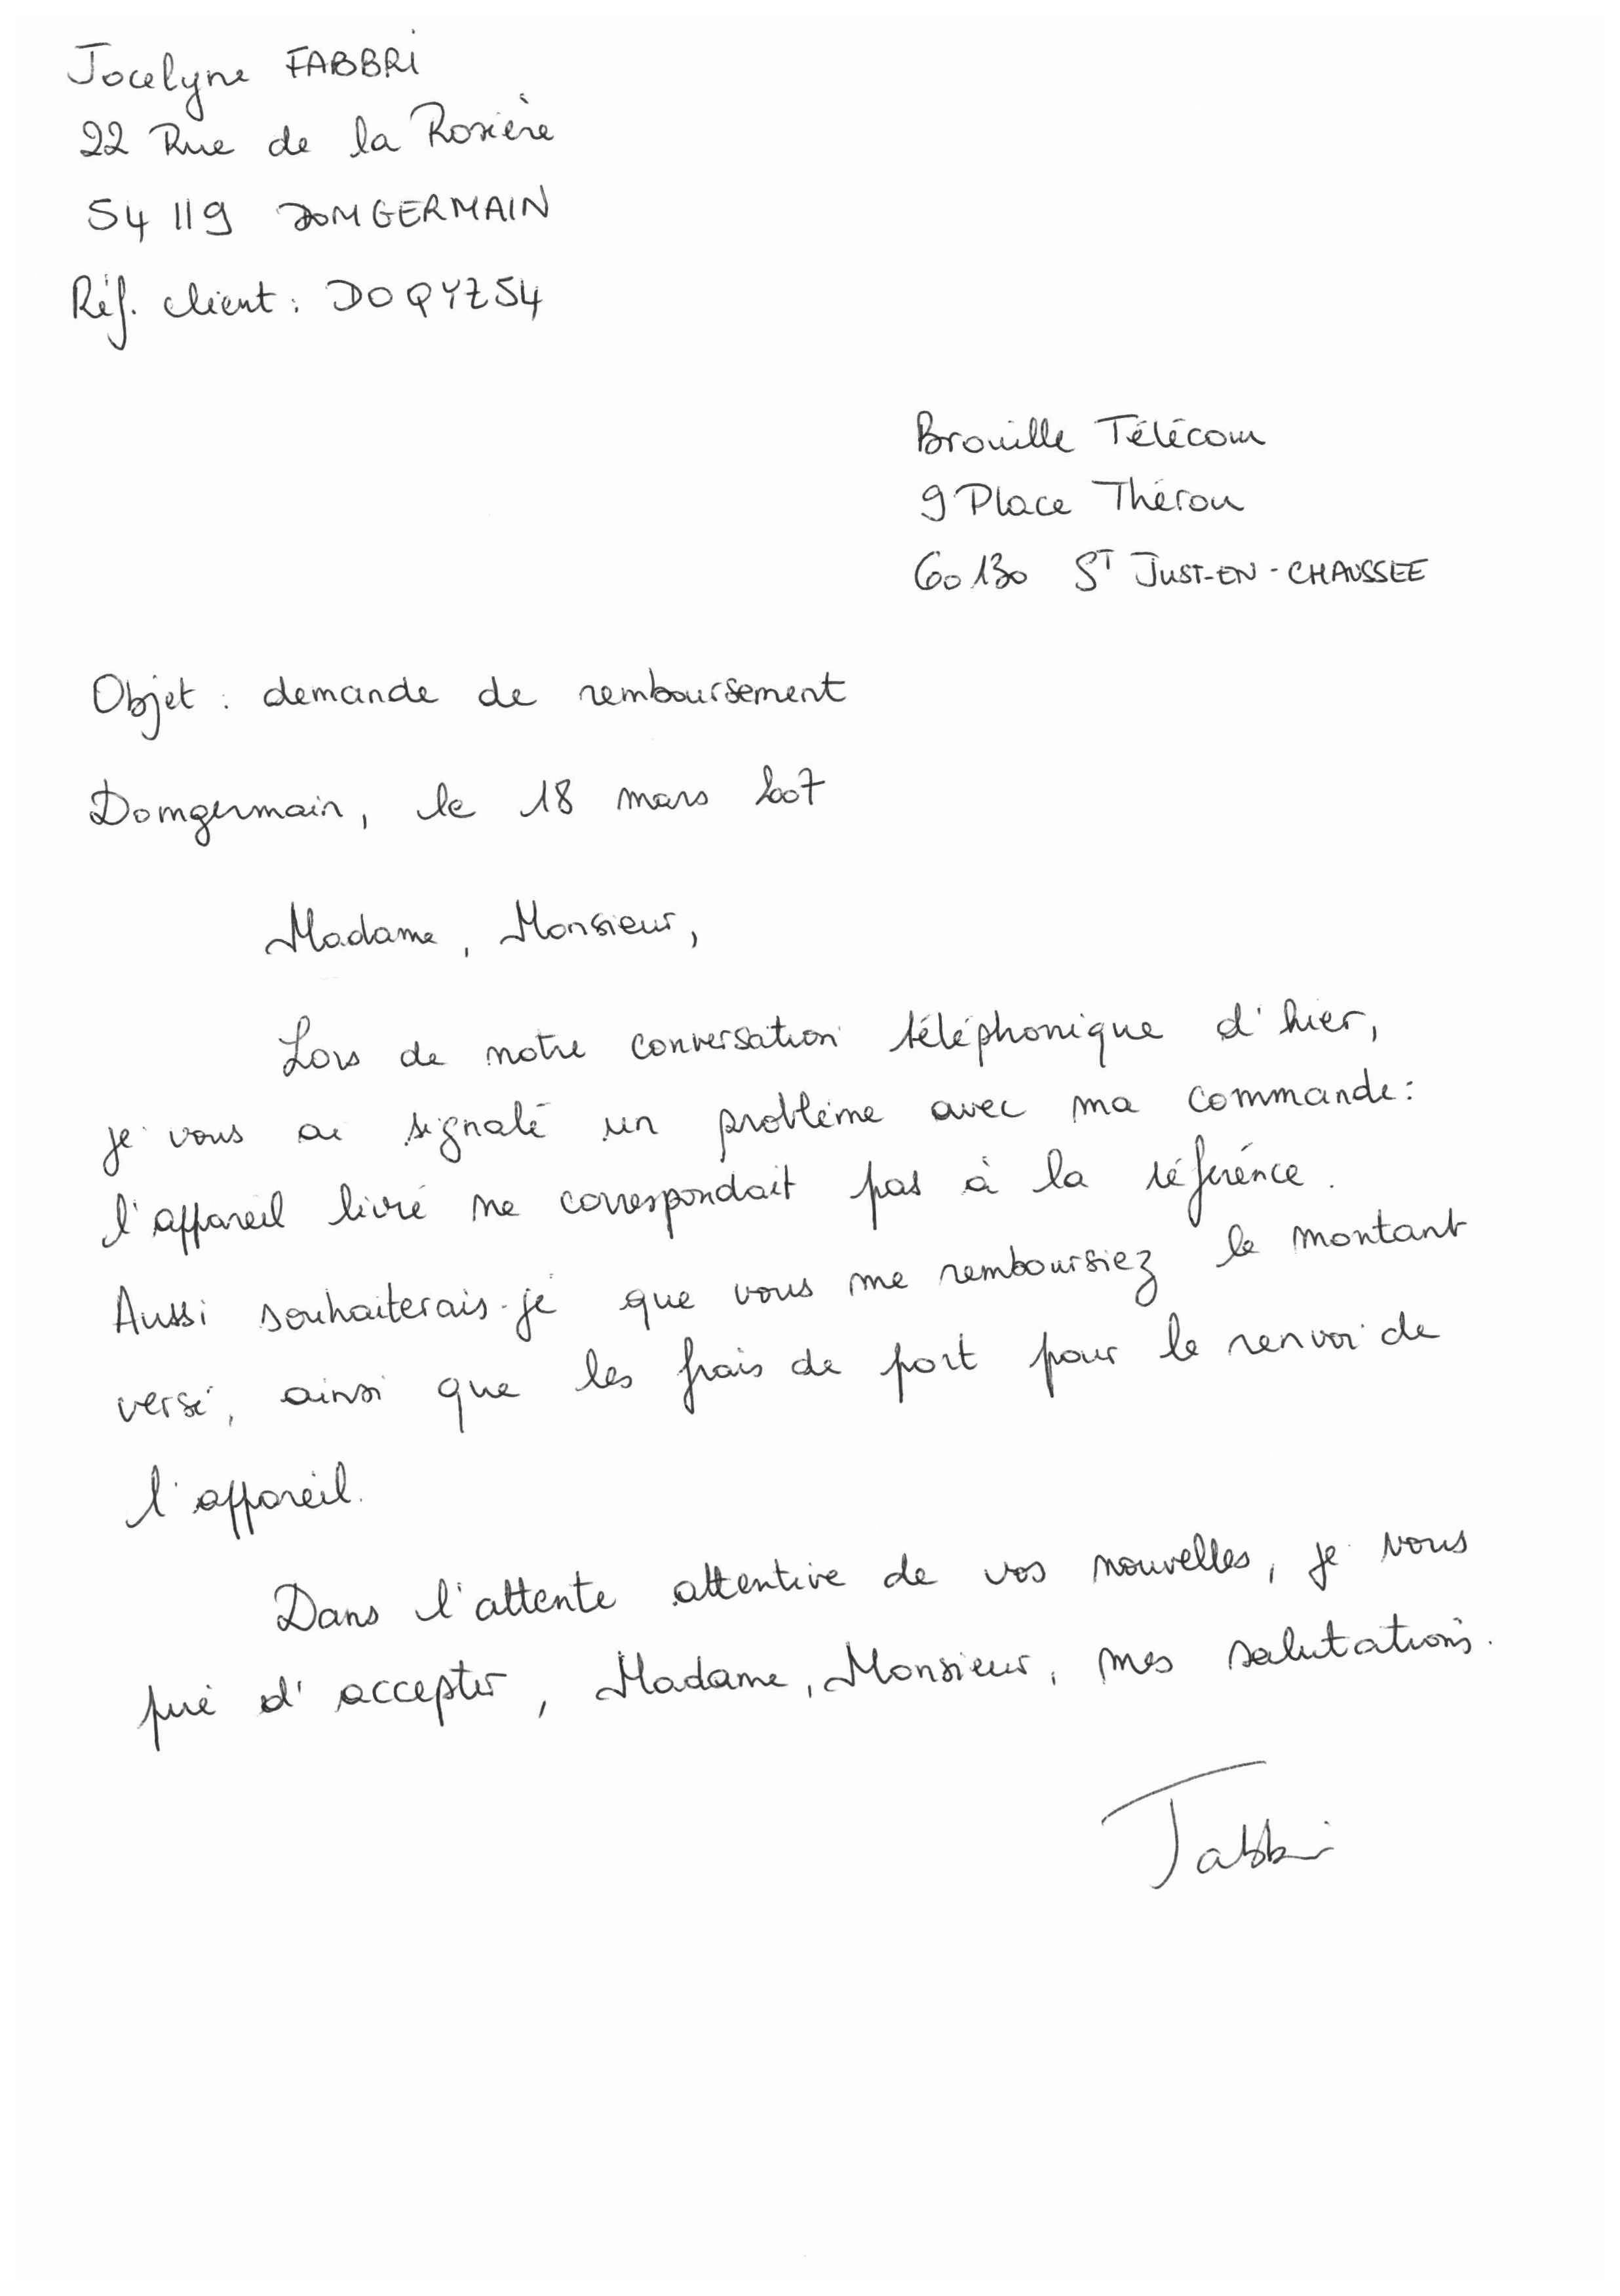 Jocelyne FABBRI
22 Rue de la Rosière
54 119 DOMGERMAIN
Réf. client : DOQYZ54
Brouille Télécom
9 Place Thérou
60130 ST JUST-EN-CHAUSSEE
Objet : demande de remboursement
Domgermain, le 18 mars 2007
Madame, Monsieur,
Lors de notre conversation téléphonique d'hier,
je vous ai signalé un problème avec ma commande :
l'appareil livré ne correspondait pas à la référence.
Aussi souhaiterais-je que vous me remboursiez le montant
versé, ainsi que les frais de port pour le renvoi de
l'appareil.
Dans l'attente attentive de vos nouvelles, je vous
prie d'accepter, Madame, Monsieur, mes salutations.
Fabbri